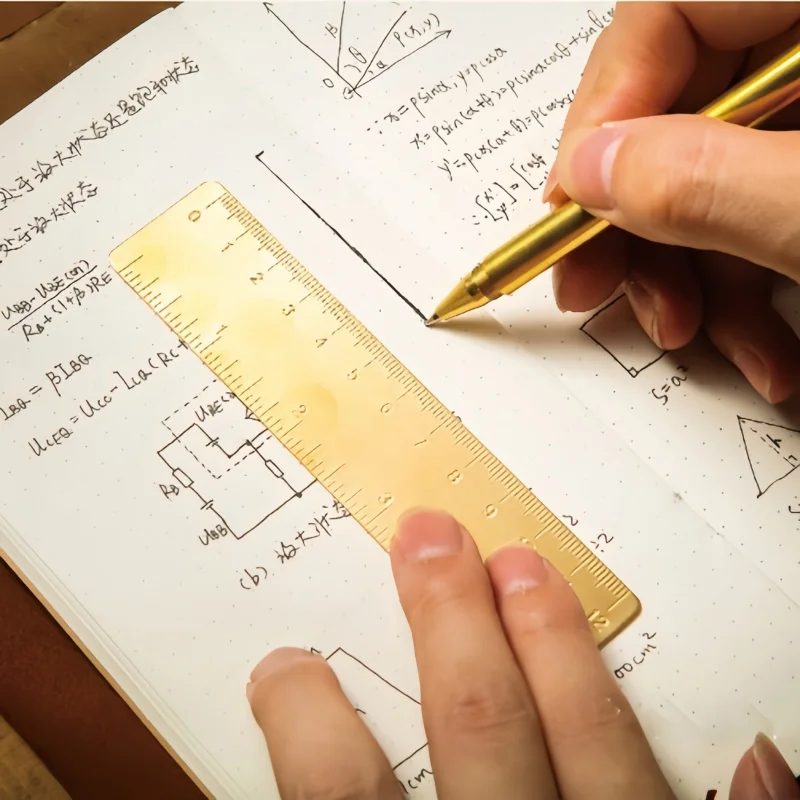 处于放大状态还是饱和状态
处于放大状态
UBB-UBE(on)
RB+(1+β)RE
IBQ = βIBQ
UCEQ = UCC-ICQ(RC+
RB
UBB
UBE(
(b) 放大状态
β
θ
α
P(x,y)
O
∴ x=ρsinα, y=ρcosα
x'=ρsin(α+θ)=ρsinαcosθ+sinθcos
y'=ρcos(α+θ)=ρcosα
∴ [x' y'] = [cosθ
S=a²
h
0 1 2 3 4 5 6 7 8 9 12
2 3
÷2
00cm²
1cm